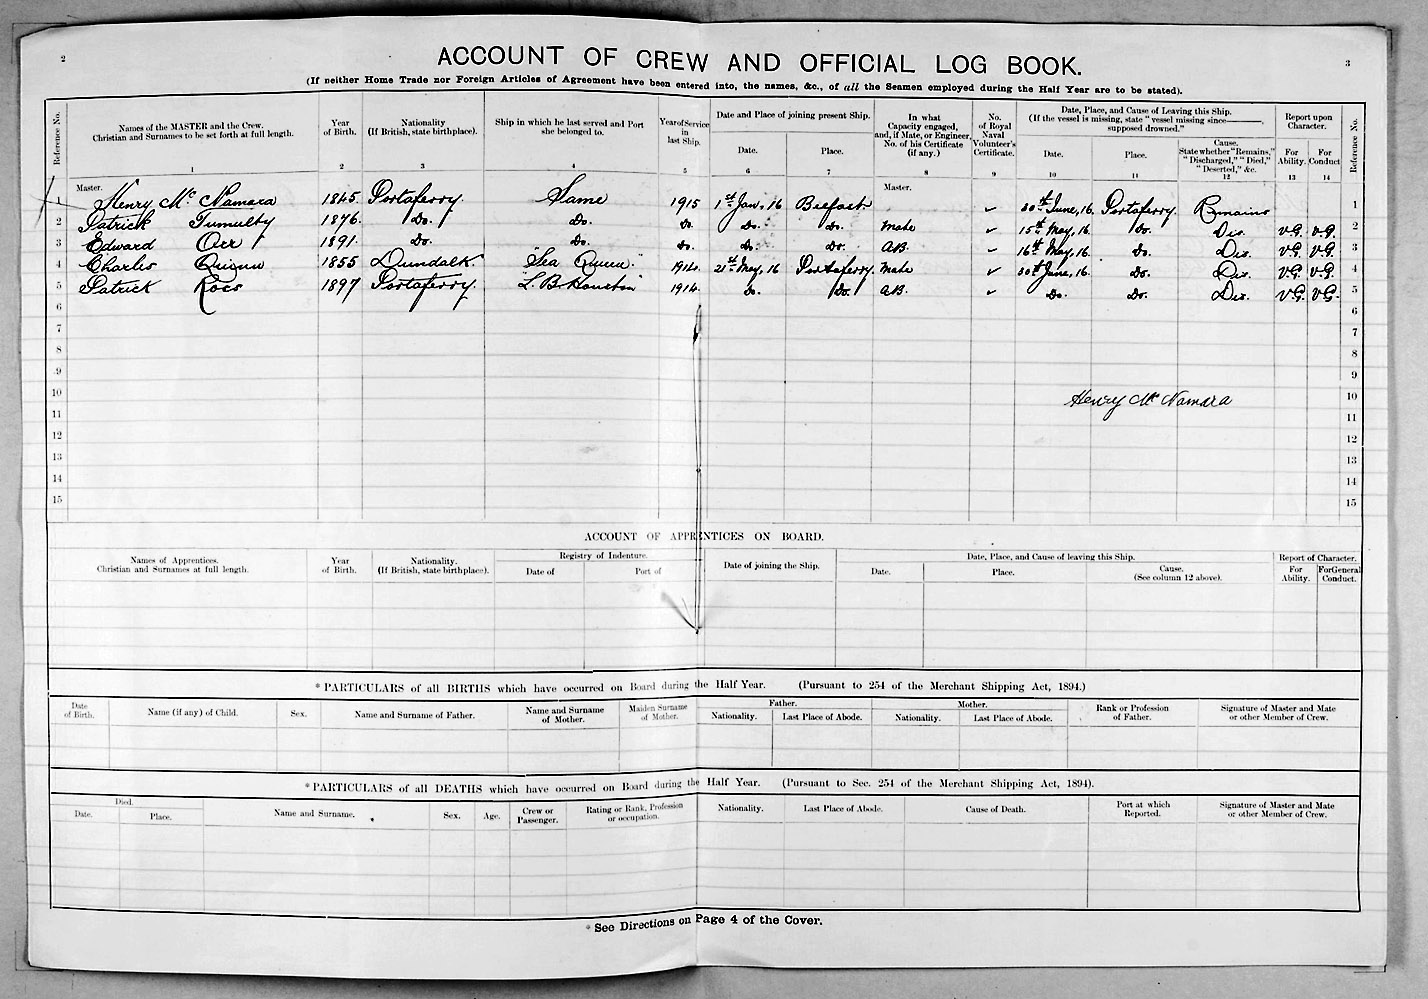 2
3
ACCOUNT OF CREW AND OFFICIAL LOG BOOK.
(If neither Home Trade nor Foreign Articles of Agreement have been entered into, the names, &c., of all the Seamen employed during the Half Year are to be stated).
Reference No. | Names of the MASTER and the Crew. Christian and Surnames to be set forth at full length. | Year of Birth. | Nationality (If British, state birthplace). | Ship in which he last served and Port she belonged to. | Year of Service in last Ship. | Date and Place of joining present Ship. | In what Capacity engaged, and, if Mate, or Engineer, No. of his Certificate (if any.) | No. of Royal Naval Volunteer's Certificate. | Date, Place, and Cause of Leaving this Ship. (If the vessel is missing, state "vessel missing since———, supposed drowned." | Report upon Character. | Reference No.
Date. | Place. | Date. | Place. | Cause. State whether "Remains," "Discharged," "Died," "Deserted," &c. | For Ability. | For Conduct
1 2 3 4 5 6 7 8 9 10 11 12 13 14
Master. Master.
1 Henry Mc Namara 1845 Portaferry. Same 1915 1st Jan, 16 Belfast ✓ 30th June, 16 Portaferry. Remains 1
2 Patrick Tumulty 1876. Do. Do. Do. Do. Do. Mate 15th May, 16. Do. Dis. V.G. V.G. 2
3 Edward Orr 1891. Do. Do. Do. Do. Do. A.B. 16th May, 16. Do. Dis. V.G. V.G. 3
4 Charles Quinn 1855 Dundalk. "Sea Queen" 1914. 21st May, 16 Portaferry. Mate ✓ 30th June, 16. Do. Dis. V.G. V.G. 4
5 Patrick Ross 1897 Portaferry. "L. B. Houston" 1914. Do. Do. A.B. ✓ Do. Do. Dis. V.G. V.G. 5
6 6
7 7
8 8
9 9
10 Henry Mc Namara 10
11 11
12 12
13 13
14 14
15 15
ACCOUNT OF APPRENTICES ON BOARD.
Names of Apprentices. Christian and Surnames at full length. | Year of Birth. | Nationality. (If British, state birthplace). | Registry of Indenture. | Date of joining the Ship. | Date, Place, and Cause of leaving this Ship. | Report of Character.
Date of | Port of | Date. | Place. | Cause. (See column 12 above). | For Ability. | For General Conduct.
* PARTICULARS of all BIRTHS which have occurred on Board during the Half Year. (Pursuant to 254 of the Merchant Shipping Act, 1894.)
Date of Birth. | Name (if any) of Child. | Sex. | Name and Surname of Father. | Name and Surname of Mother. | Maiden Surname of Mother. | Father. | Mother. | Rank or Profession of Father. | Signature of Master and Mate or other Member of Crew.
Nationality. | Last Place of Abode. | Nationality. | Last Place of Abode.
* PARTICULARS of all DEATHS which have occurred on Board during the Half Year. (Pursuant to Sec. 254 of the Merchant Shipping Act, 1894).
Died. | Name and Surname. | Sex. | Age. | Crew or Passenger. | Rating or Rank, Profession or occupation. | Nationality. | Last Place of Abode. | Cause of Death. | Port at which Reported. | Signature of Master and Mate or other Member of Crew.
Date. | Place.
* See Directions on Page 4 of the Cover.